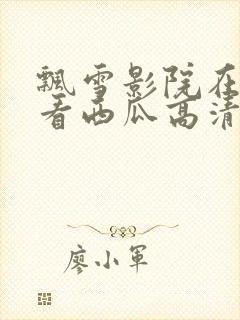 飘雪影院在
看西瓜高清
廖小军